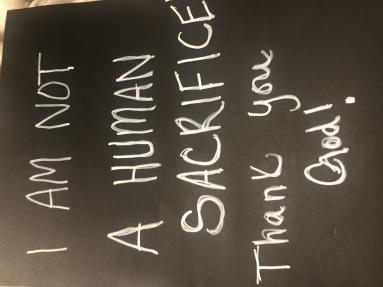 I AM NOT
A HUMAN
SACRIFICE
Thank you
God!